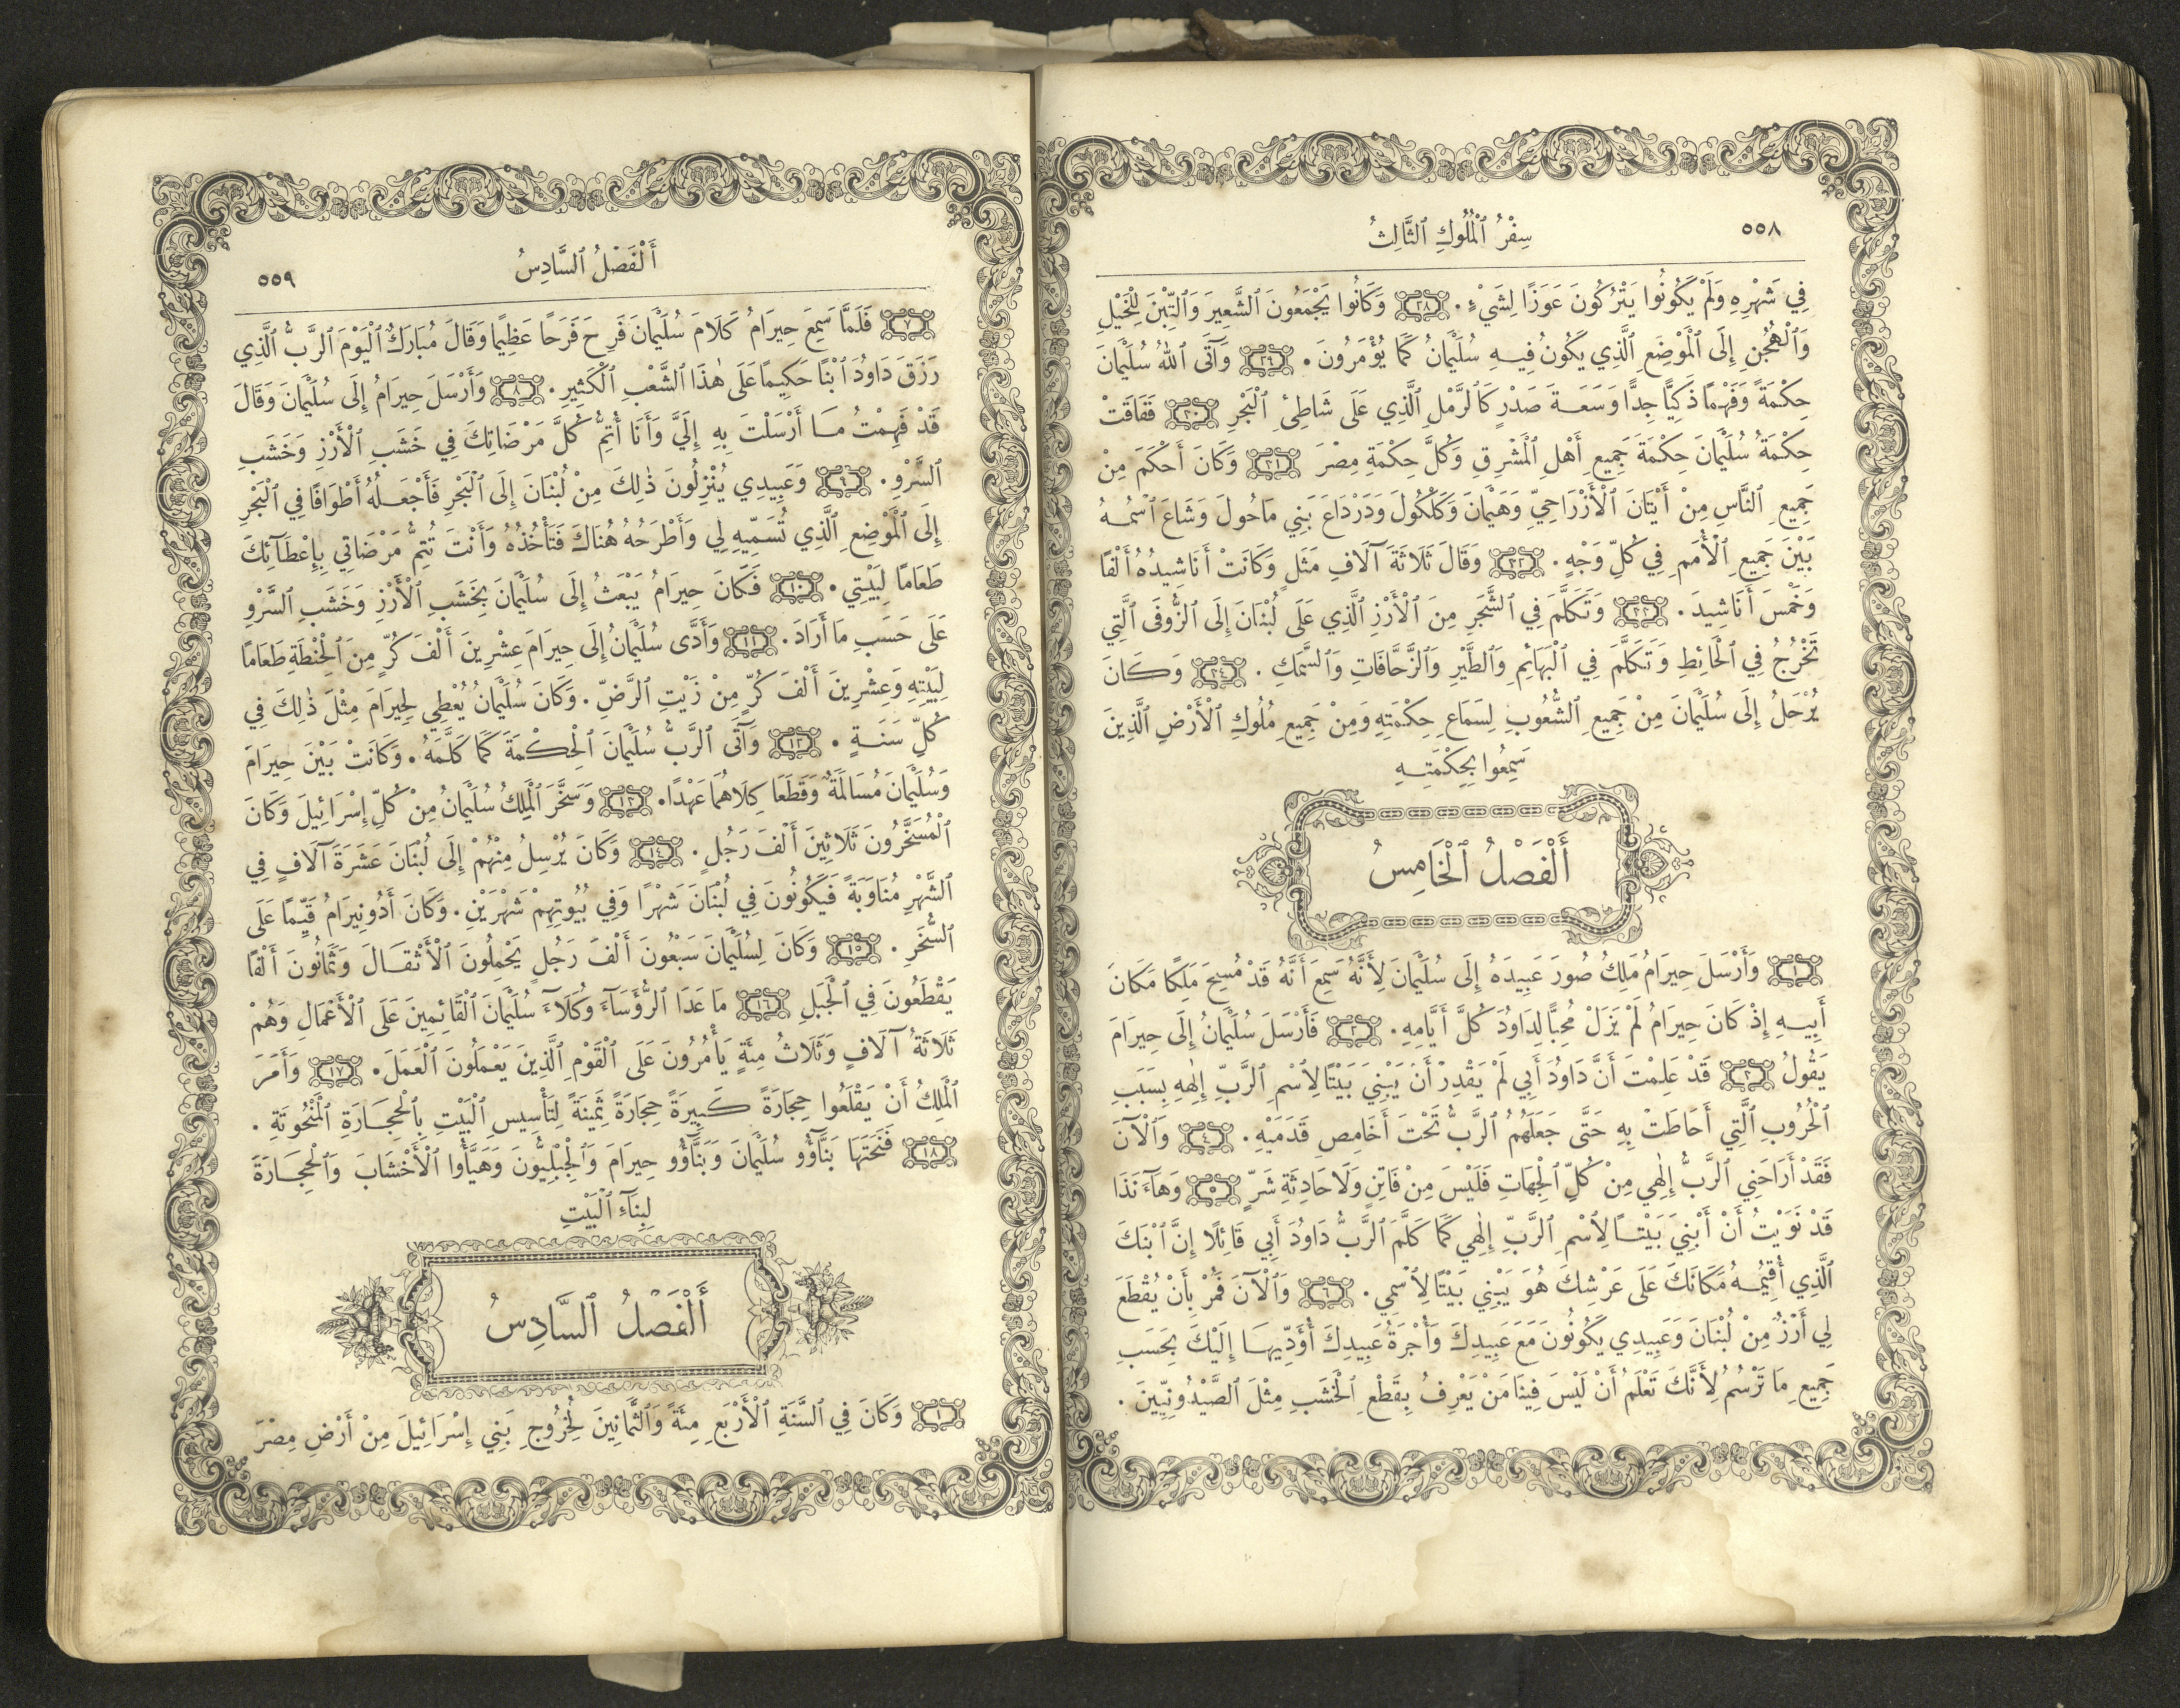 ٥٥٨
سِفْرُ ٱلْمُلُوكِ ٱلثَّالِثُ
فِي شَهْرِهِ وَلَمْ يَكُونُوا يَتْرُكُونَ عَوَزًا لِشَيْءٍ. ﴿٢٨﴾ وَكَانُوا يَجْمَعُونَ ٱلشَّعِيرَ وَٱلتِّبْنَ لِلْخَيْلِ
وَٱلْهُجُنِ إِلَى ٱلْمَوْضِعِ ٱلَّذِي يَكُونُ فِيهِ سُلَيْمَانُ كَمَا يُؤْمَرُونَ. ﴿٢٩﴾ وَآتَى ٱللهُ سُلَيْمَانَ
حِكْمَةً وَفَهْمًا ذَكِيًّا جِدًّا وَسَعَةَ صَدْرٍ كَٱلرَّمْلِ ٱلَّذِي عَلَى شَاطِئِ ٱلْبَحْرِ ﴿٣٠﴾ فَفَاقَتْ
حِكْمَةُ سُلَيْمَانَ حِكْمَةَ جَمِيعِ أَهْلِ ٱلْمَشْرِقِ وَكُلَّ حِكْمَةِ مِصْرَ ﴿٣١﴾ وَكَانَ أَحْكَمَ مِنْ
جَمِيعِ ٱلنَّاسِ مِنْ أَيْتَانَ ٱلْأَزْرَاحِيِّ وَهَيْمَانَ وَكَلْكُولَ وَدَرْدَاعَ بَنِي مَاحُولَ وَشَاعَ ٱسْمُهُ
بَيْنَ جَمِيعِ ٱلْأُمَمِ فِي كُلِّ وَجْهٍ. ﴿٣٢﴾ وَقَالَ ثَلَاثَةَ آلَافِ مَثَلٍ وَكَانَتْ أَنَاشِيدُهُ أَلْفًا
وَخَمْسَ أَنَاشِيدَ. ﴿٣٣﴾ وَتَكَلَّمَ فِي ٱلشَّجَرِ مِنَ ٱلْأَرْزِ ٱلَّذِي عَلَى لُبْنَانَ إِلَى ٱلزُّوفَى ٱلَّتِي
تَخْرُجُ فِي ٱلْحَائِطِ وَتَكَلَّمَ فِي ٱلْبَهَائِمِ وَٱلطَّيْرِ وَٱلزَّحَّافَاتِ وَٱلسَّمَكِ. ﴿٣٤﴾ وَكَانَ
يُرْحَلُ إِلَى سُلَيْمَانَ مِنْ جَمِيعِ ٱلشُّعُوبِ لِسَمَاعِ حِكْمَتِهِ وَمِنْ جَمِيعِ مُلُوكِ ٱلْأَرْضِ ٱلَّذِينَ
سَمِعُوا بِحِكْمَتِهِ
أَلْفَصْلُ ٱلْخَامِسُ
﴿١﴾ وَأَرْسَلَ حِيرَامُ مَلِكُ صُورَ عَبِيدَهُ إِلَى سُلَيْمَانَ لِأَنَّهُ سَمِعَ أَنَّهُ قَدْ مُسِحَ مَلِكًا مَكَانَ
أَبِيهِ إِذْ كَانَ حِيرَامُ لَمْ يَزَلْ مُحِبًّا لِدَاوُدَ كُلَّ أَيَّامِهِ. ﴿٢﴾ فَأَرْسَلَ سُلَيْمَانُ إِلَى حِيرَامَ
يَقُولُ ﴿٣﴾ قَدْ عَلِمْتَ أَنَّ دَاوُدَ أَبِي لَمْ يَقْدِرْ أَنْ يَبْنِيَ بَيْتًا لِٱسْمِ ٱلرَّبِّ إِلٰهِهِ بِسَبَبِ
ٱلْحُرُوبِ ٱلَّتِي أَحَاطَتْ بِهِ حَتَّى جَعَلَهُمُ ٱلرَّبُّ تَحْتَ أَخَامِصِ قَدَمَيْهِ. ﴿٤﴾ وَٱلْآنَ
فَقَدْ أَرَاحَنِي ٱلرَّبُّ إِلٰهِي مِنْ كُلِّ ٱلْجِهَاتِ فَلَيْسَ مِنْ فَاتِنٍ وَلَا حَادِثَةِ شَرٍّ ﴿٥﴾ وَهَآءَنَذَا
قَدْ نَوَيْتُ أَنْ أَبْنِيَ بَيْتًا لِٱسْمِ ٱلرَّبِّ إِلٰهِي كَمَا كَلَّمَ ٱلرَّبُّ دَاوُدَ أَبِي قَائِلًا إِنَّ ٱبْنَكَ
ٱلَّذِي أُقِيمُهُ مَكَانَكَ عَلَى عَرْشِكَ هُوَ يَبْنِي بَيْتًا لِٱسْمِي. ﴿٦﴾ وَٱلْآنَ فَمُرْ بِأَنْ يُقْطَعَ
لِي أَرْزٌ مِنْ لُبْنَانَ وَعَبِيدِي يَكُونُونَ مَعَ عَبِيدِكَ وَأُجْرَةُ عَبِيدِكَ أُؤَدِّيهَا إِلَيْكَ بِحَسَبِ
جَمِيعِ مَا تَرْسُمُ لِأَنَّكَ تَعْلَمُ أَنْ لَيْسَ فِينَا مَنْ يَعْرِفُ بِقَطْعِ ٱلْخَشَبِ مِثْلَ ٱلصَّيْدُونِيِّينَ.
أَلْفَصْلُ ٱلسَّادِسُ
٥٥٩
﴿٧﴾ فَلَمَّا سَمِعَ حِيرَامُ كَلَامَ سُلَيْمَانَ فَرِحَ فَرَحًا عَظِيمًا وَقَالَ مُبَارَكٌ ٱلْيَوْمَ ٱلرَّبُّ ٱلَّذِي
رَزَقَ دَاوُدَ ٱبْنًا حَكِيمًا عَلَى هٰذَا ٱلشَّعْبِ ٱلْكَثِيرِ. ﴿٨﴾ وَأَرْسَلَ حِيرَامُ إِلَى سُلَيْمَانَ وَقَالَ
قَدْ فَهِمْتُ مَا أَرْسَلْتَ بِهِ إِلَيَّ وَأَنَا أُتِمُّ كُلَّ مَرْضَاتِكَ فِي خَشَبِ ٱلْأَرْزِ وَخَشَبِ
ٱلسَّرْوِ. ﴿٩﴾ وَعَبِيدِي يُنْزِلُونَ ذٰلِكَ مِنْ لُبْنَانَ إِلَى ٱلْبَحْرِ فَأَجْعَلُهُ أَطْوَافًا فِي ٱلْبَحْرِ
إِلَى ٱلْمَوْضِعِ ٱلَّذِي تُسَمِّيهِ لِي وَأَطْرَحُهُ هُنَاكَ فَتَأْخُذُهُ وَأَنْتَ تُتِمُّ مَرْضَاتِي بِإِعْطَآئِكَ
طَعَامًا لِبَيْتِي. ﴿١٠﴾ فَكَانَ حِيرَامُ يَبْعَثُ إِلَى سُلَيْمَانَ بِخَشَبِ ٱلْأَرْزِ وَخَشَبِ ٱلسَّرْوِ
عَلَى حَسَبِ مَا أَرَادَ. ﴿١١﴾ وَأَدَّى سُلَيْمَانُ إِلَى حِيرَامَ عِشْرِينَ أَلْفَ كُرٍّ مِنَ ٱلْحِنْطَةِ طَعَامًا
لِبَيْتِهِ وَعِشْرِينَ أَلْفَ كُرٍّ مِنْ زَيْتِ ٱلرَّضِّ. وَكَانَ سُلَيْمَانُ يُعْطِي لِحِيرَامَ مِثْلَ ذٰلِكَ فِي
كُلِّ سَنَةٍ. ﴿١٢﴾ وَآتَى ٱلرَّبُّ سُلَيْمَانَ ٱلْحِكْمَةَ كَمَا كَلَّمَهُ. وَكَانَتْ بَيْنَ حِيرَامَ
وَسُلَيْمَانَ مُسَالَمَةٌ وَقَطَعَا كِلَاهُمَا عَهْدًا. ﴿١٣﴾ وَسَخَّرَ ٱلْمَلِكُ سُلَيْمَانُ مِنْ كُلِّ إِسْرَائِيلَ وَكَانَ
ٱلْمُسَخَّرُونَ ثَلَاثِينَ أَلْفَ رَجُلٍ. ﴿١٤﴾ وَكَانَ يُرْسِلُ مِنْهُمْ إِلَى لُبْنَانَ عَشَرَةَ آلَافٍ فِي
ٱلشَّهْرِ مُنَاوَبَةً فَيَكُونُونَ فِي لُبْنَانَ شَهْرًا وَفِي بُيُوتِهِمْ شَهْرَيْنِ. وَكَانَ أَدُونِيرَامُ قَيِّمًا عَلَى
ٱلسُّخَرِ. ﴿١٥﴾ وَكَانَ لِسُلَيْمَانَ سَبْعُونَ أَلْفَ رَجُلٍ يَحْمِلُونَ ٱلْأَثْقَالَ وَثَمَانُونَ أَلْفًا
يَقْطَعُونَ فِي ٱلْجَبَلِ ﴿١٦﴾ مَا عَدَا ٱلرُّؤَسَآءَ وُكَلَآءَ سُلَيْمَانَ ٱلْقَائِمِينَ عَلَى ٱلْأَعْمَالِ وَهُمْ
ثَلَاثَةُ آلَافٍ وَثَلَاثُ مِئَةٍ يَأْمُرُونَ عَلَى ٱلْقَوْمِ ٱلَّذِينَ يَعْمَلُونَ ٱلْعَمَلَ. ﴿١٧﴾ وَأَمَرَ
ٱلْمَلِكُ أَنْ يَقْلَعُوا حِجَارَةً كَبِيرَةً حِجَارَةً ثَمِينَةً لِتَأْسِيسِ ٱلْبَيْتِ بِٱلْحِجَارَةِ ٱلْمَنْحُوتَةِ.
﴿١٨﴾ فَنَحَتَهَا بَنَّآؤُو سُلَيْمَانَ وَبَنَّآؤُو حِيرَامَ وَٱلْجِبْلِيُّونَ وَهَيَّأُوا ٱلْأَخْشَابَ وَٱلْحِجَارَةَ
لِبِنَآءِ ٱلْبَيْتِ
أَلْفَصْلُ ٱلسَّادِسُ
﴿١﴾ وَكَانَ فِي ٱلسَّنَةِ ٱلْأَرْبَعِ مِئَةٍ وَٱلثَّمَانِينَ لِخُرُوجِ بَنِي إِسْرَائِيلَ مِنْ أَرْضِ مِصْرَ